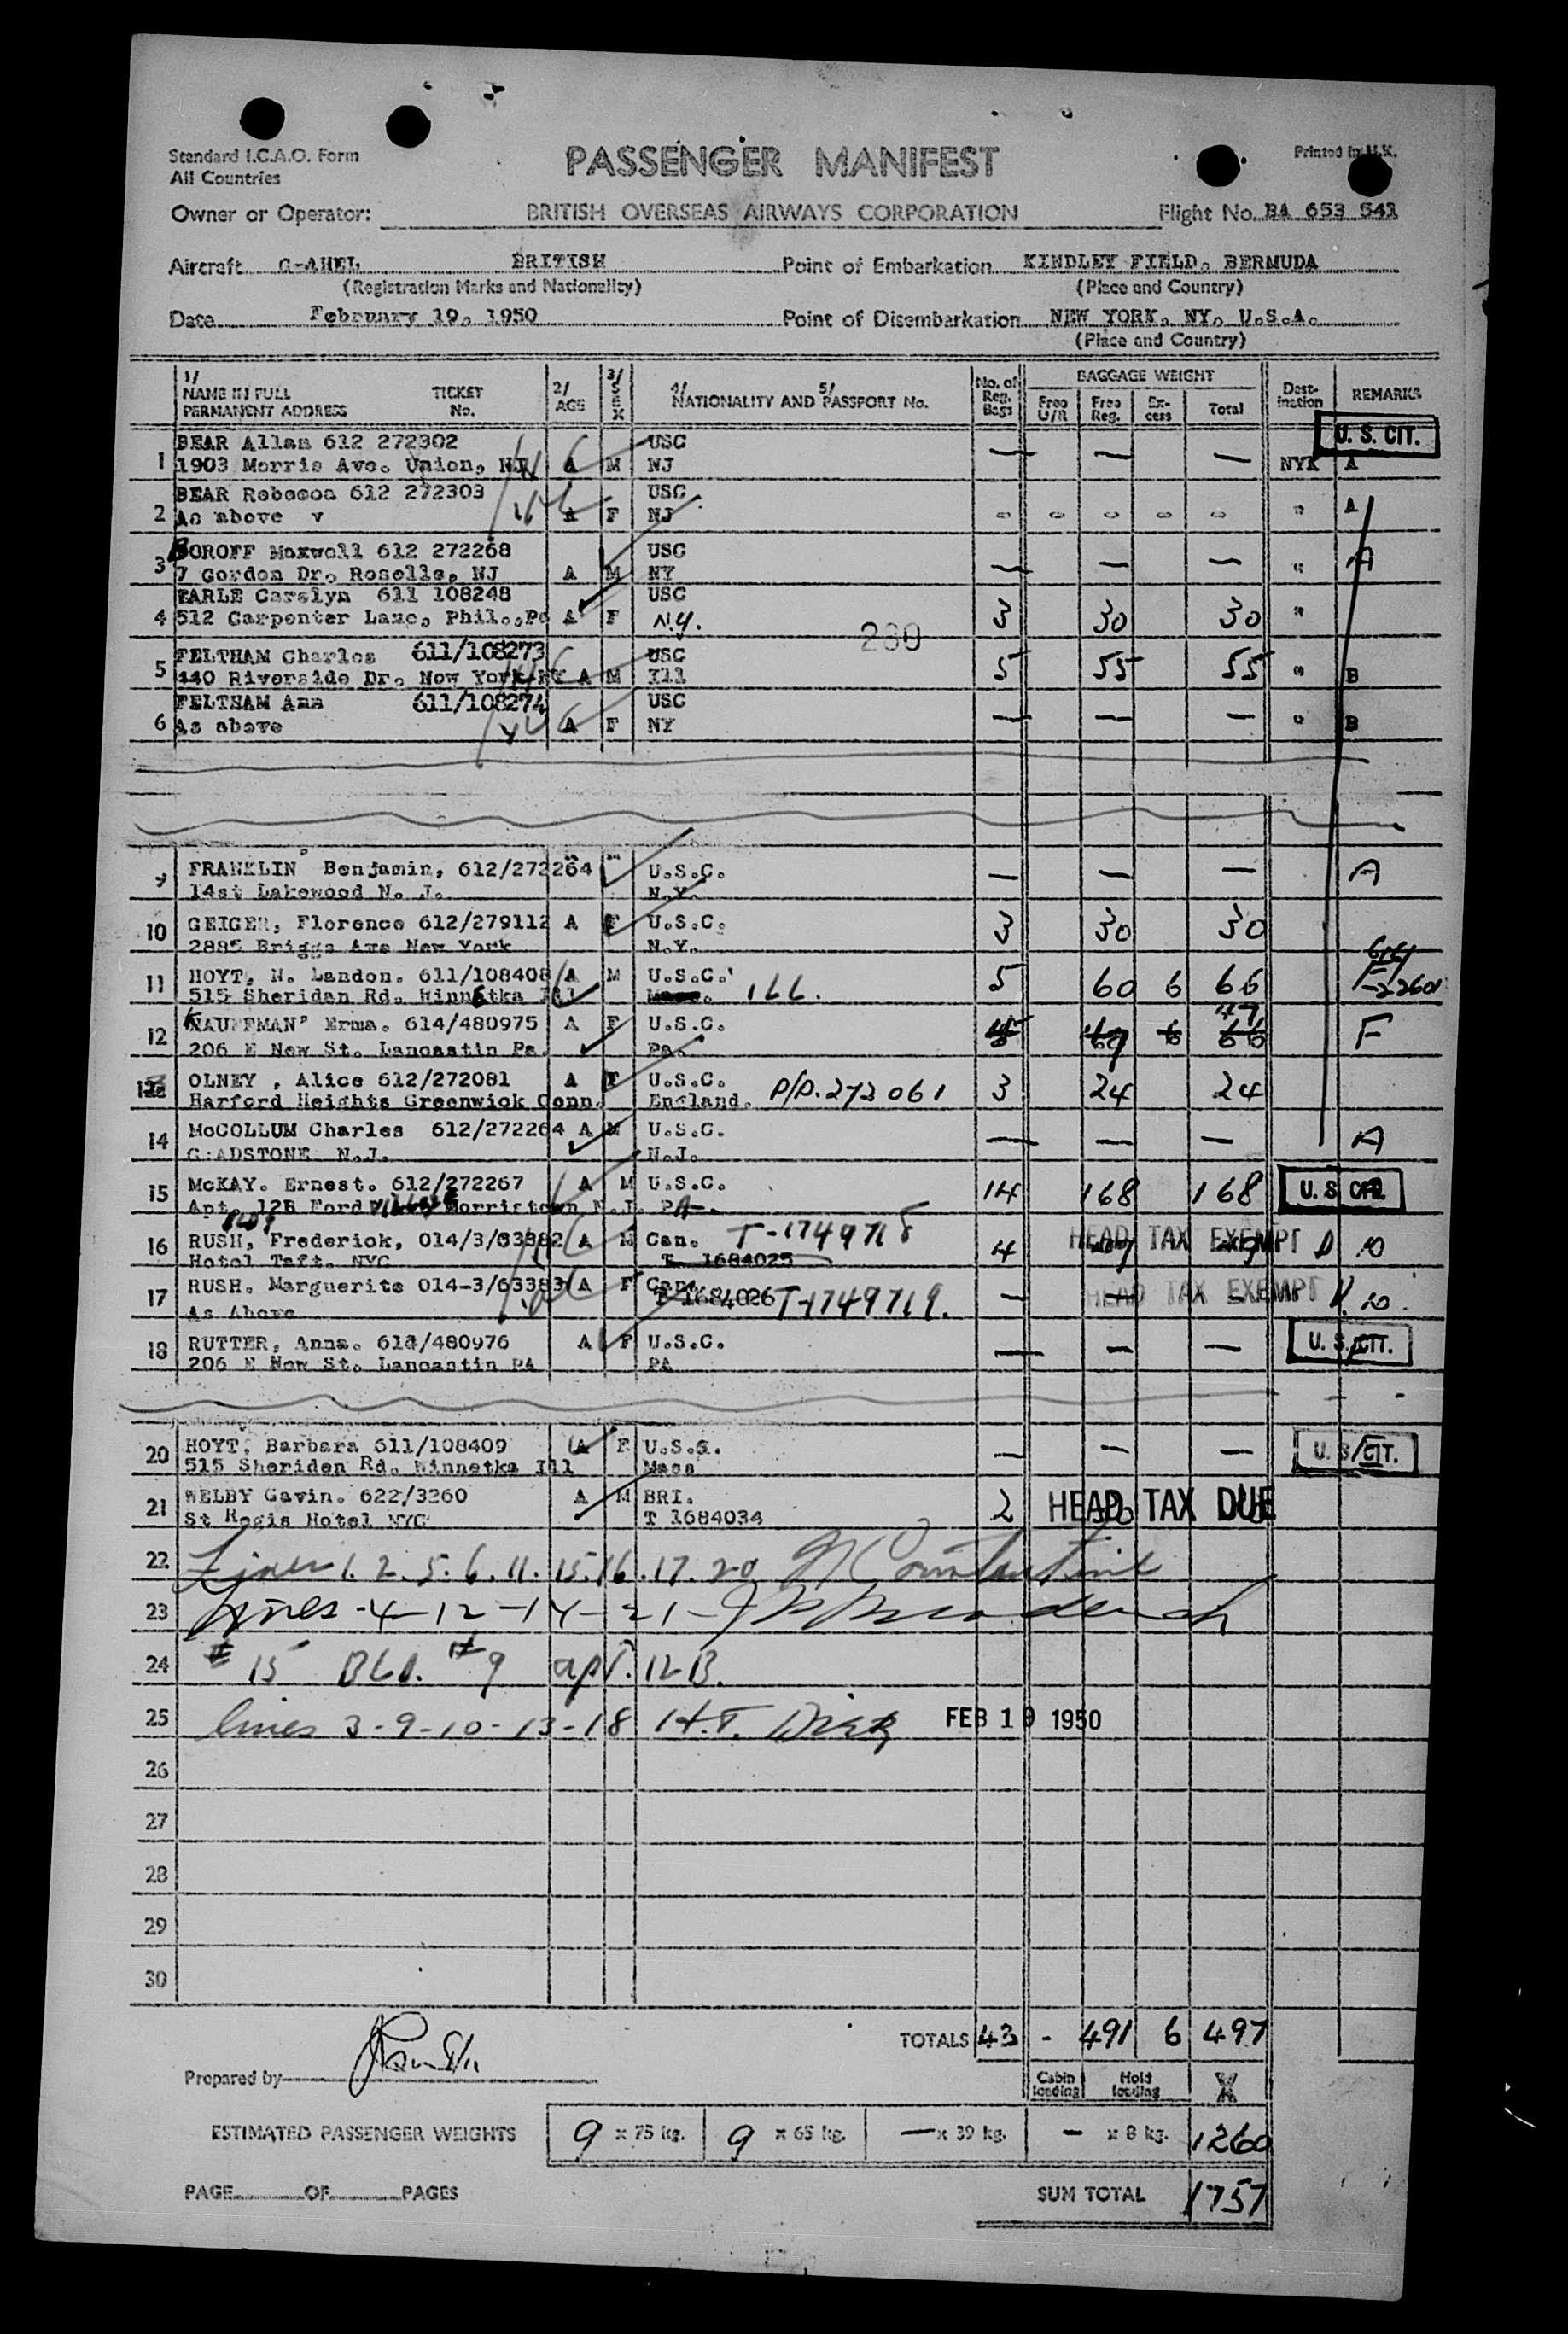 Standard I.C.A.O. Form
All Countries
PASSENGER MANIFEST
Printed in U.K.
Owner or Operator: BRITISH OVERSEAS AIRWAYS CORPORATION Flight No. BA 653 541
Aircraft G-AHEL BRITISH Point of Embarkation KINDLEY FIELD, BERMUDA
(Registration Marks and Nationality) (Place and Country)
Date February 19, 1950 Point of Disembarkation NEW YORK, NY, U.S.A.
(Place and Country)
1/ NAME IN FULL PERMANENT ADDRESS TICKET No. 2/ AGE 3/ SEX 4/ 5/ NATIONALITY AND PASSPORT No. No. of Reg. Bags BAGGAGE WEIGHT Free U/R Free Reg. Excess Total Destination REMARKS
U. S. CIT.
BEAR Allan 612 272302 USC
1 1903 Morris Ave. Union, NJ A M NJ — — — NYK A
BEAR Rebecca 612 272303 USC
2 As above v A F NJ - - - - - " A
BOROFF Maxwell 612 272268 USC
3 7 Gordon Dr. Roselle, NJ A M NY — — — " A
EARLE Carolyn 611 108248 USC
4 512 Carpenter Lane, Phil.,Pa A F N.Y. 3 30 30 "
230
FELTHAM Charles 611/108273 USC
5 440 Riverside Dr. New York NY A M Ill 5 55 55 " B
FELTHAM Ann 611/108274 USC
6 As above A F NY — — — " B
9 FRANKLIN Benjamin, 612/272264 U.S.C. — — — A
14st Lakewood N. J. N.Y.
10 GEIGER, Florence 612/279112 A F U.S.C. 3 30 30
2885 Briggs Ave New York N.Y.
11 HOYT, N. Landon. 611/108408 A M U.S.C. 5 60 6 66
515 Sheridan Rd. Winnetka Ill Mass. ILL.
12 KAUFFMAN Erma. 614/480975 A F U.S.C. 47 F
206 E New St. Lancastin Pa. PA.
13 OLNEY , Alice 612/272081 A F U.S.C. P/P.272061 3 24 24
Harford Heights Greenwick Conn. England.
14 McCOLLUM Charles 612/272264 A M U.S.C. — — — A
GLADSTONE N.J. N.J.
15 McKAY. Ernest. 612/272267 A M U.S.C. 14 168 168 U. S. CIT.
Apt. 12B Ford Village Morristown N.J. PA.
16 RUSH, Frederick, 014/3/63382 A M Can. T-1749718 4 HEAD TAX EXEMPT 10
Hotel Taft. NYC T 1684025
17 RUSH. Marguerite 014-3/63383 A F Can. — HEAD TAX EXEMPT 10
As Above T 1684026 T-1749719.
18 RUTTER, Anna. 614/480976 A F U.S.C. — — — U. S. CIT.
206 E New St. Lancastin PA PA
20 HOYT, Barbara 611/108409 A F U.S.C. — — — U. S. CIT.
515 Sheridan Rd. Winnetka Ill Mass
21 WELBY Gavin. 622/3260 A M BRI. 2 HEAD TAX DUE
St Regis Hotel NYC T 1684034
22 Lines 1. 2. 5. 6. 11. 15. 16. 17. 20
23 Lines -4-12-14-21-
24 # 15 BLD. # 9 apt. 12 B.
25 lines 3-9-10-13-18 H.T. FEB 19 1950
26
27
28
29
30
TOTALS 43 - 491 6 497
Prepared by
Cabin loading Hold loading
ESTIMATED PASSENGER WEIGHTS 9 x 75 kg. 9 x 65 kg. — x 39 kg. — x 8 kg. 1260
PAGE OF PAGES SUM TOTAL 1757